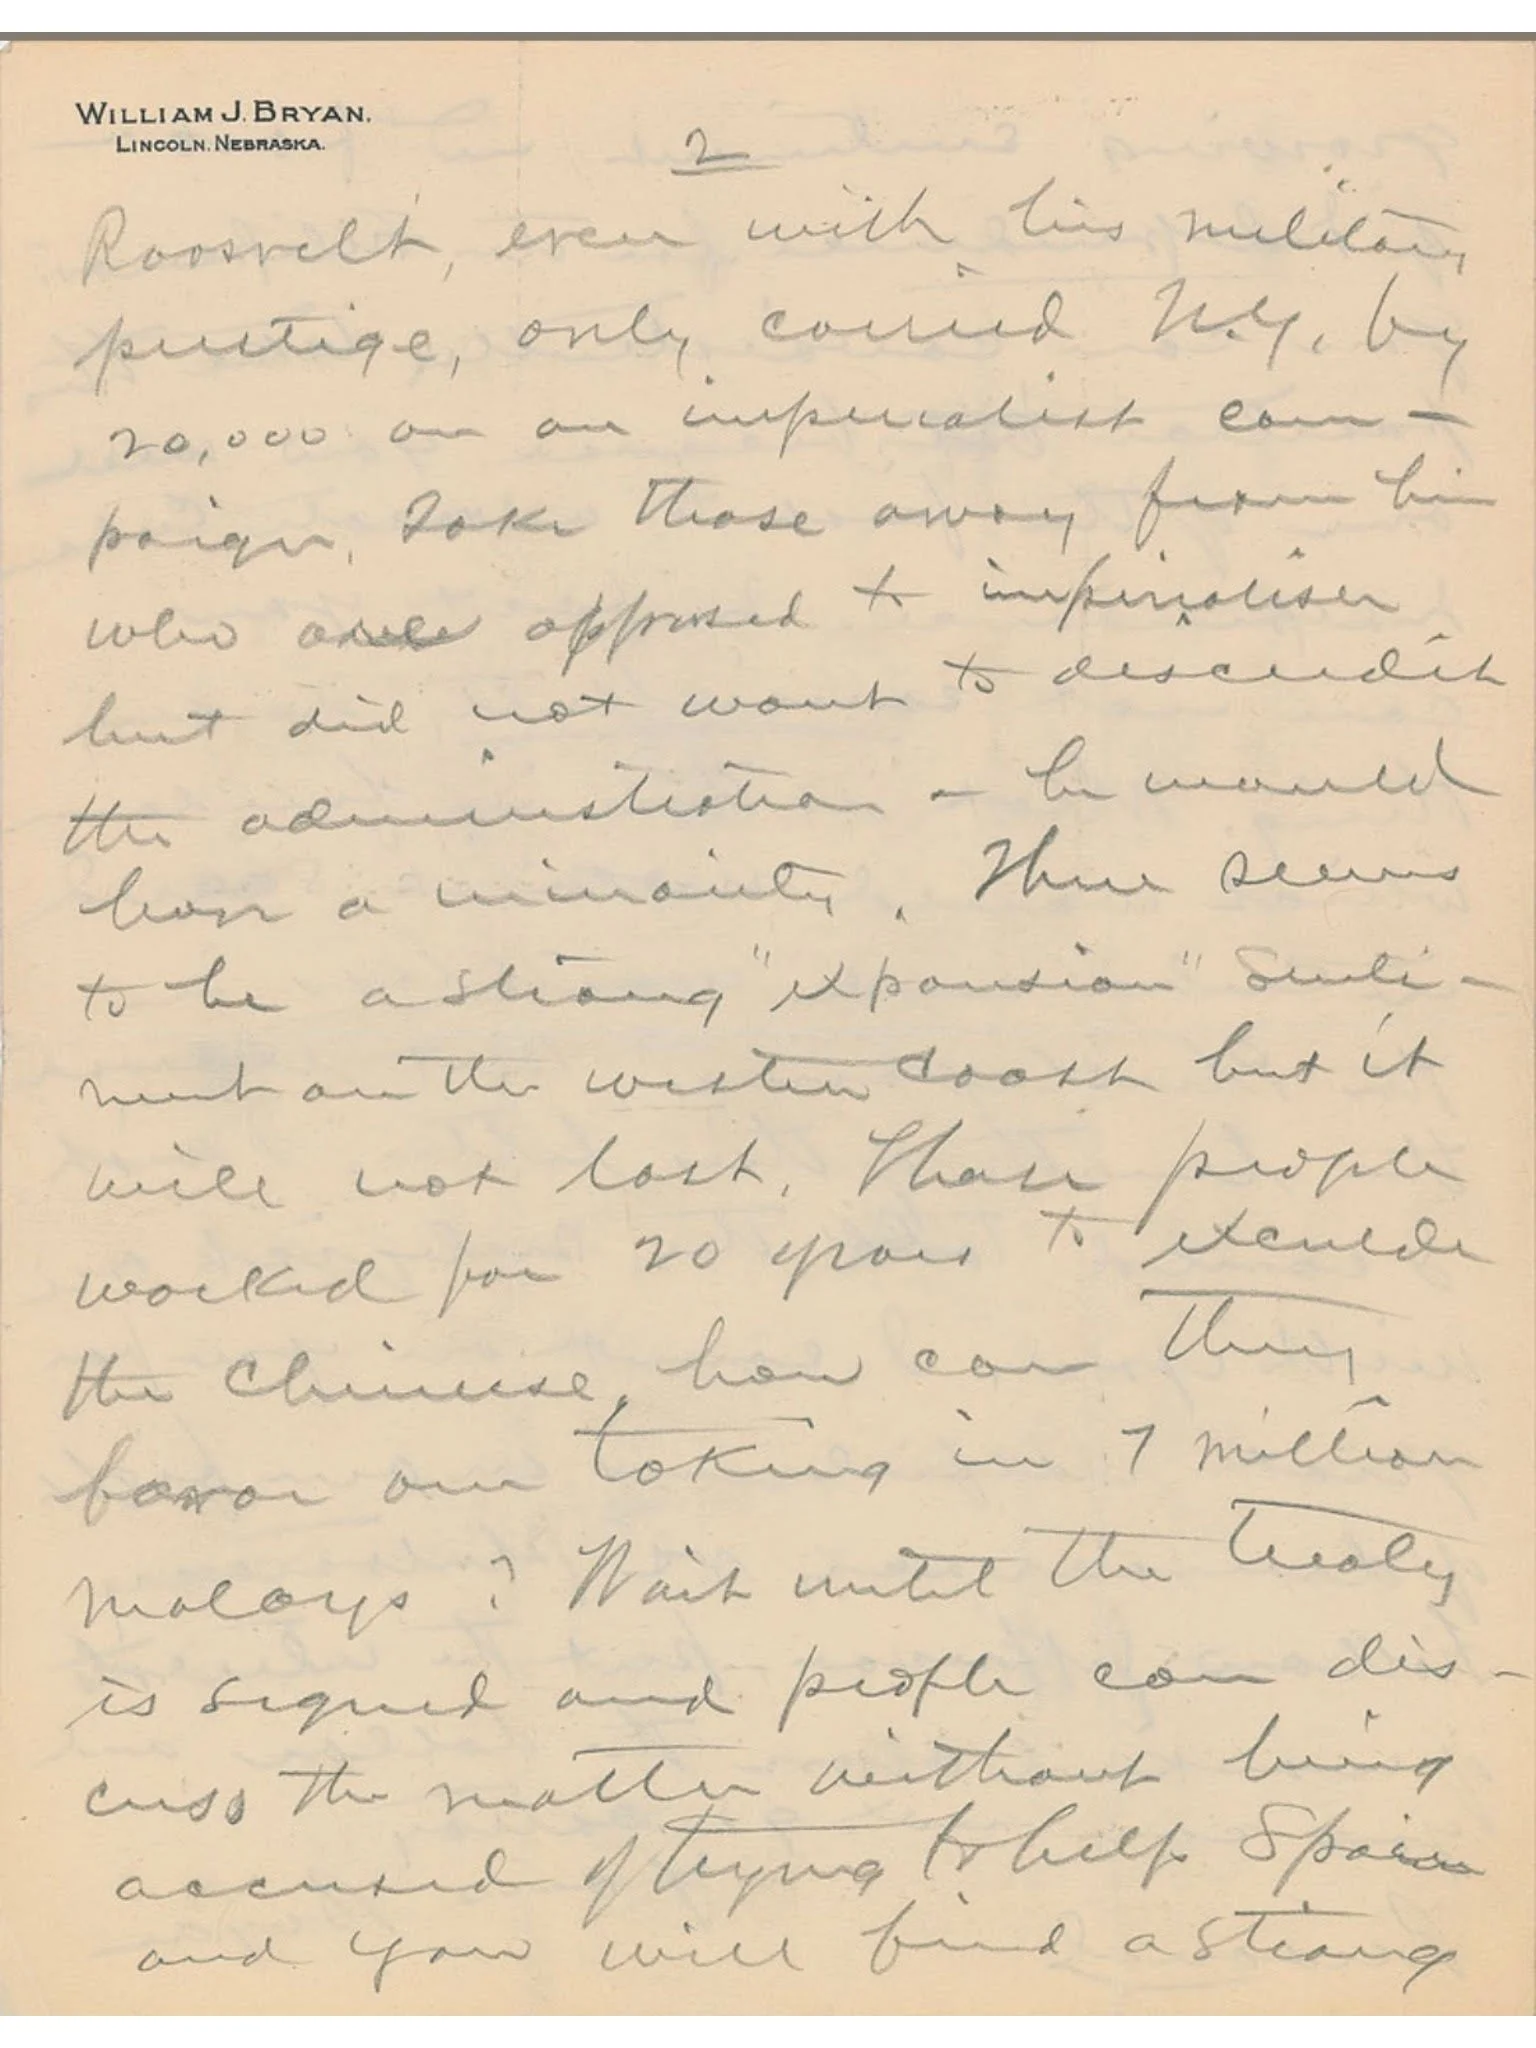 WILLIAM J. BRYAN.
LINCOLN, NEBRASKA.
2
Roosvelt, even with his military
prestige, only carried N.Y. by
20,000 on an imperialist cam-
paign. Take those away from him
who are opposed to imperialism
but did not want to discredit
the administration - he would
have a minority. There seems
to be a strong "expansion" senti-
ment on the western coast but it
will not last. Those people
worked for 20 years to exclude
the Chinese, how can they
favor our taking in 7 million
malays? Wait until the treaty
is signed and people can dis-
cuss the matter without being
accused of trying to help Spain
and you will find a strong